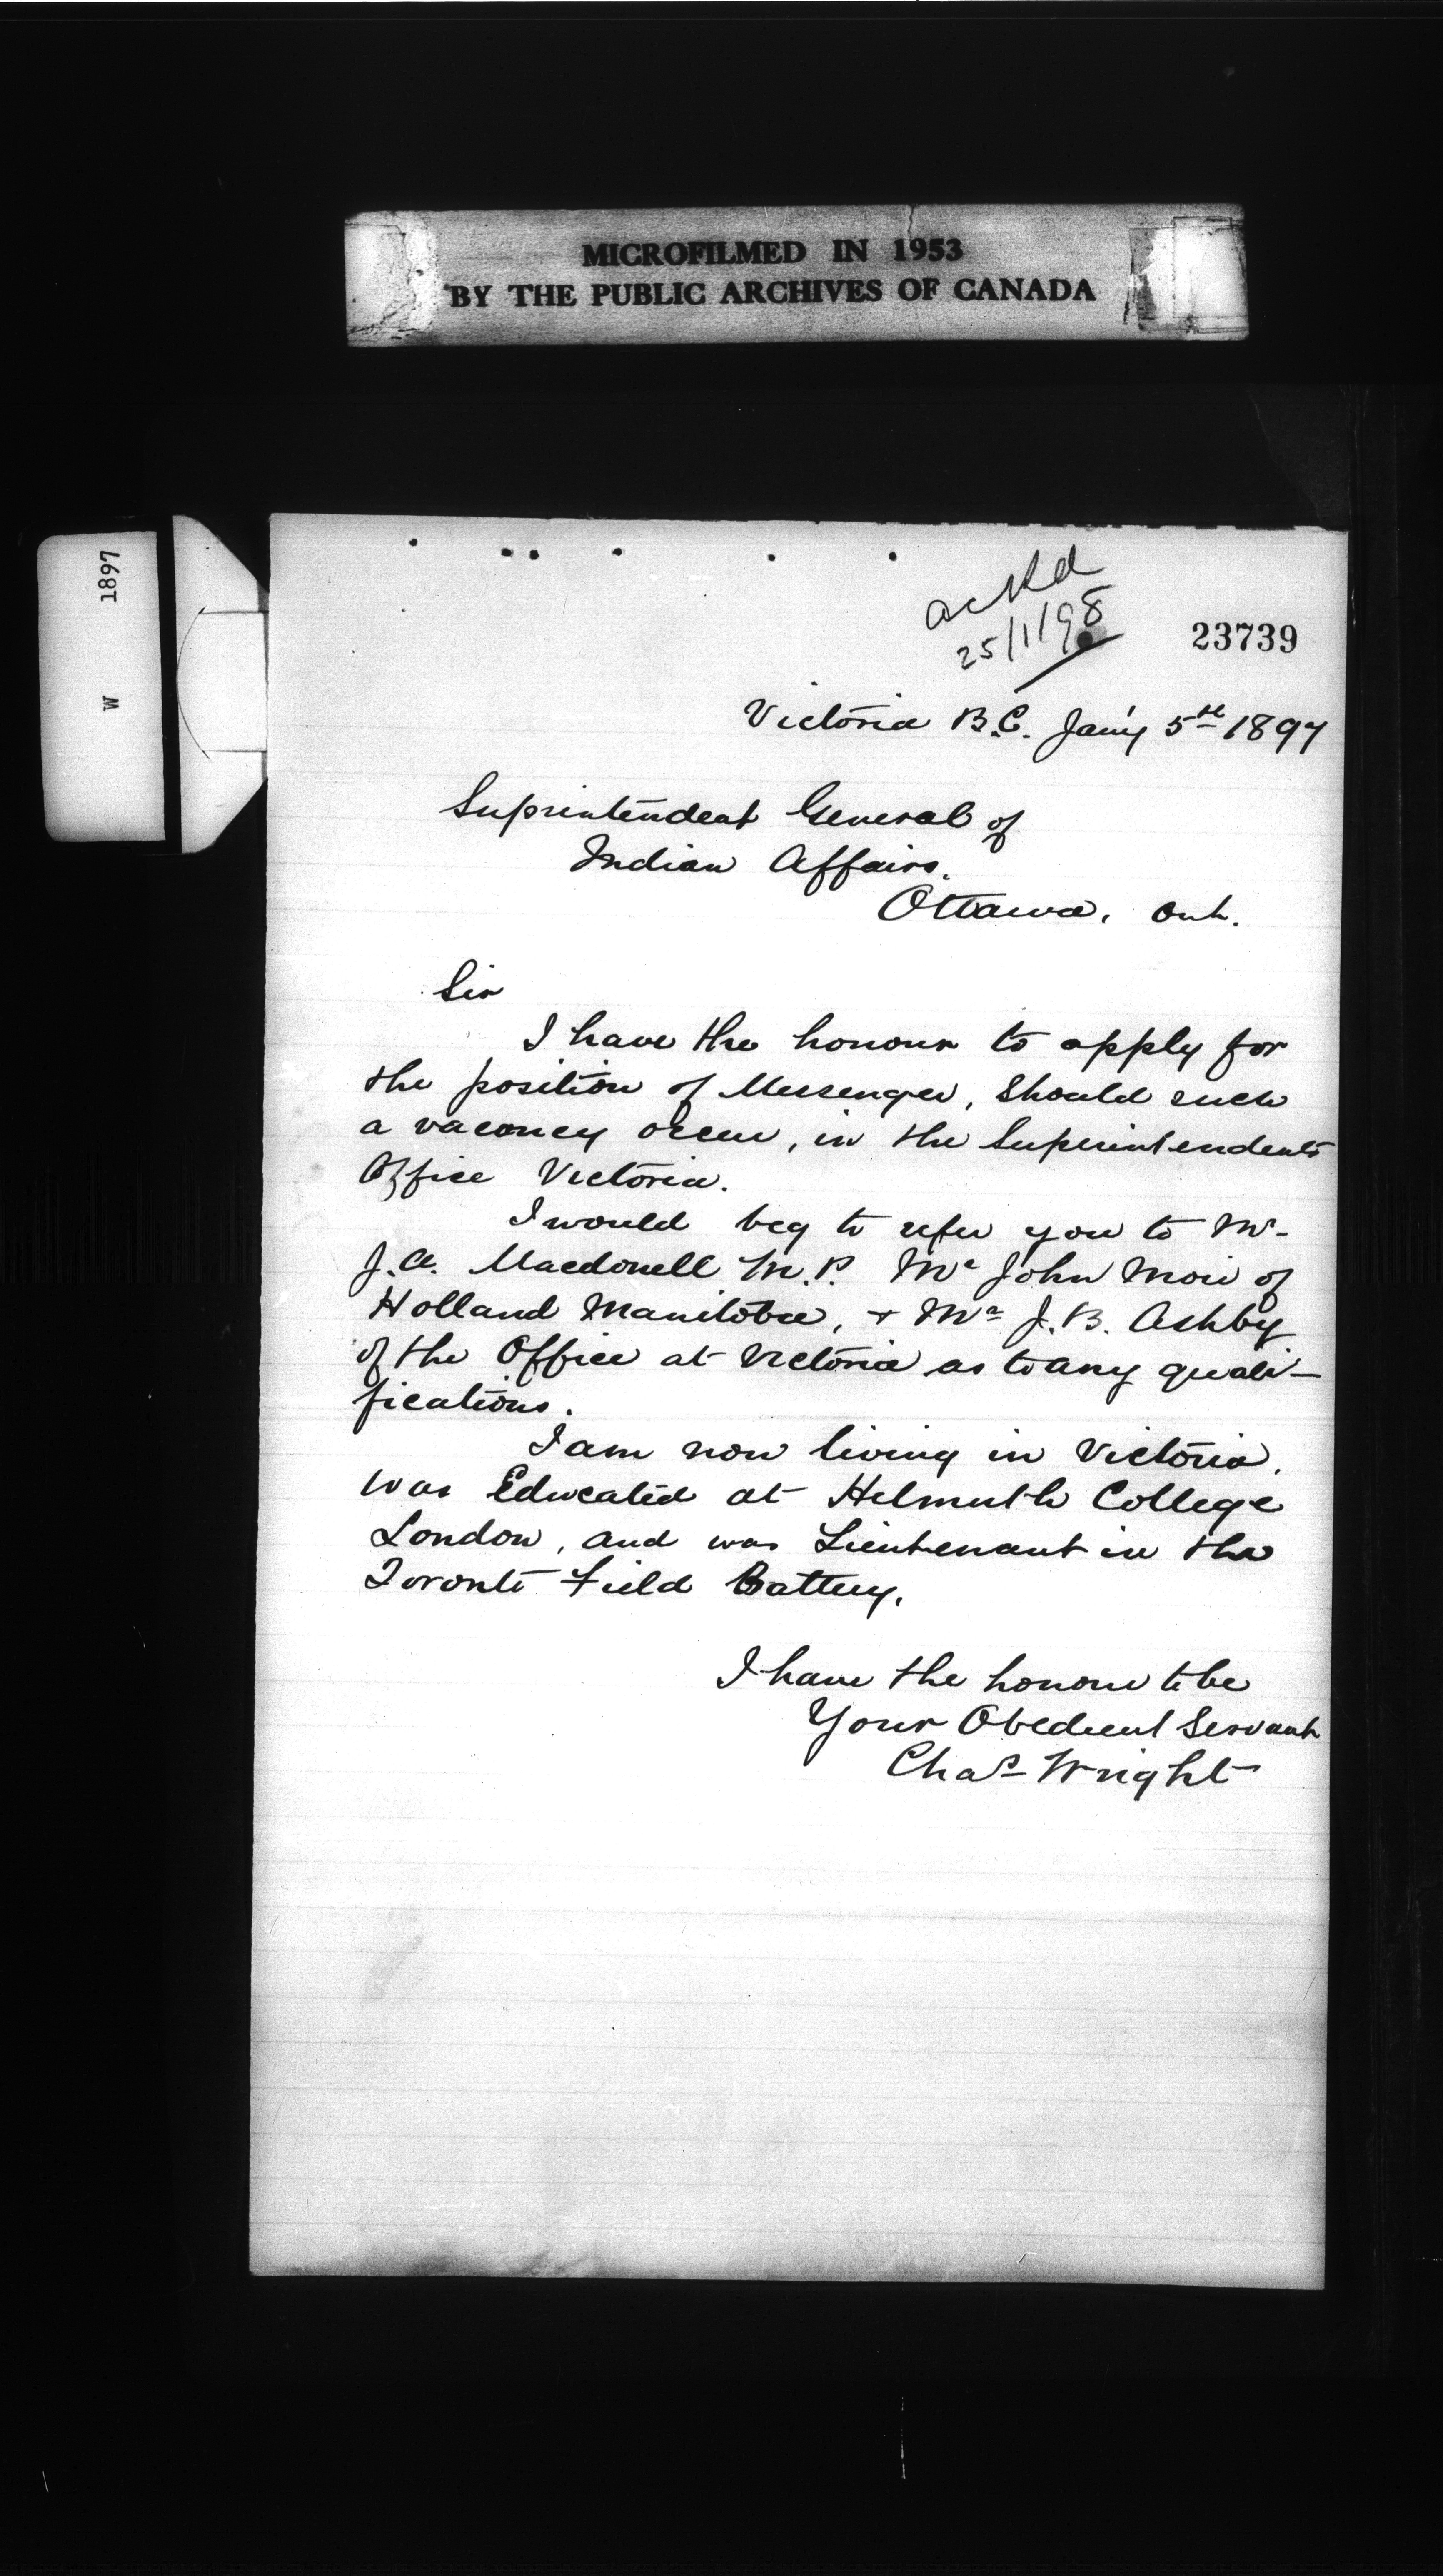 MICROFILMED IN 1953
BY THE PUBLIC ARCHIVES OF CANADA
W 1897
ackd
25/1/98
23739
Victoria B.C. Jan'y 5th 1897
Suprintendent General of
Indian Affairs.
Ottawa. Ont.
Sir
I have the honour to apply for
the position of Messenger, Should such
a vacancy occur, in the Superintendents
Office Victoria.
I would beg to refer you to Mr
J.A. Macdonell M.P. Mr John Moir of
Holland Manitoba, + Mr J.B. Ashby
of the Office at Victoria as to any quali-
fications.
I am now living in Victoria.
was Educated at Helmuth College
London, and was Lieutenant in the
Toronto Field Battery.
I have the honour to be
Your Obedient Servant
Chas Wright